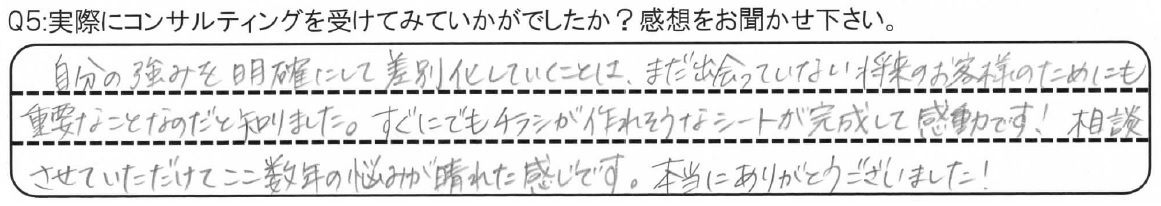 Q5:実際にコンサルティングを受けてみていかがでしたか？感想をお聞かせ下さい。
自分の強みを明確にして差別化していくことは、まだ出会っていない将来のお客様のためにも
重要なことなのだと知りました。すぐにでもチラシが作れそうなシートが完成して感動です！相談
させていただけてここ数年の悩みが晴れた感じです。本当にありがとうございました！